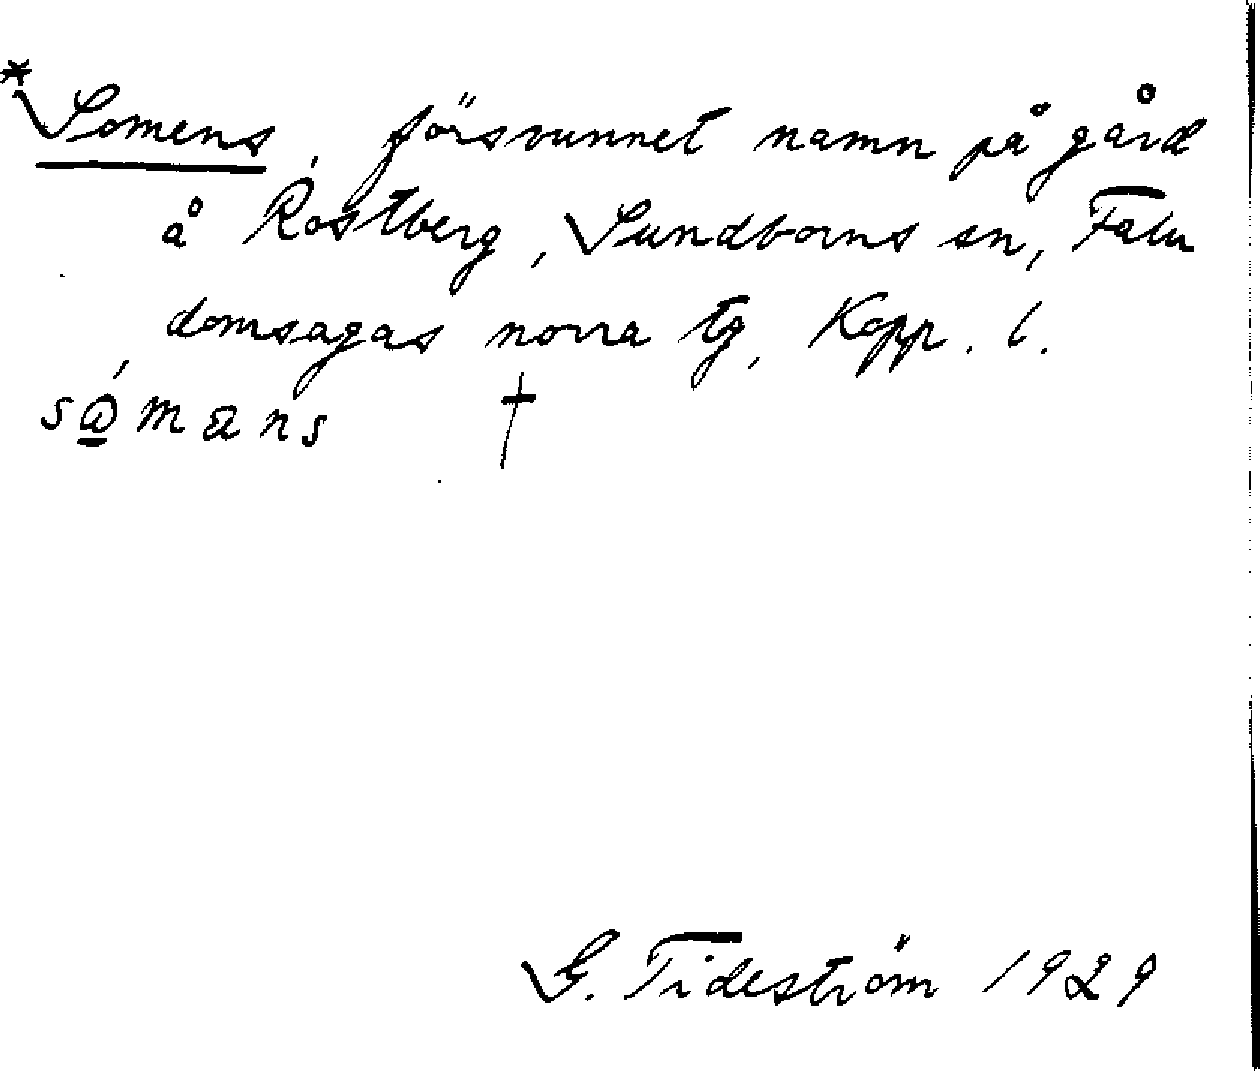 *Somens, försvunnet namn på gård
å Rostberg, Sundborns sn, Falu
domsagas norra tg, Kopp. l.
sømans †
G. Tideström 1929